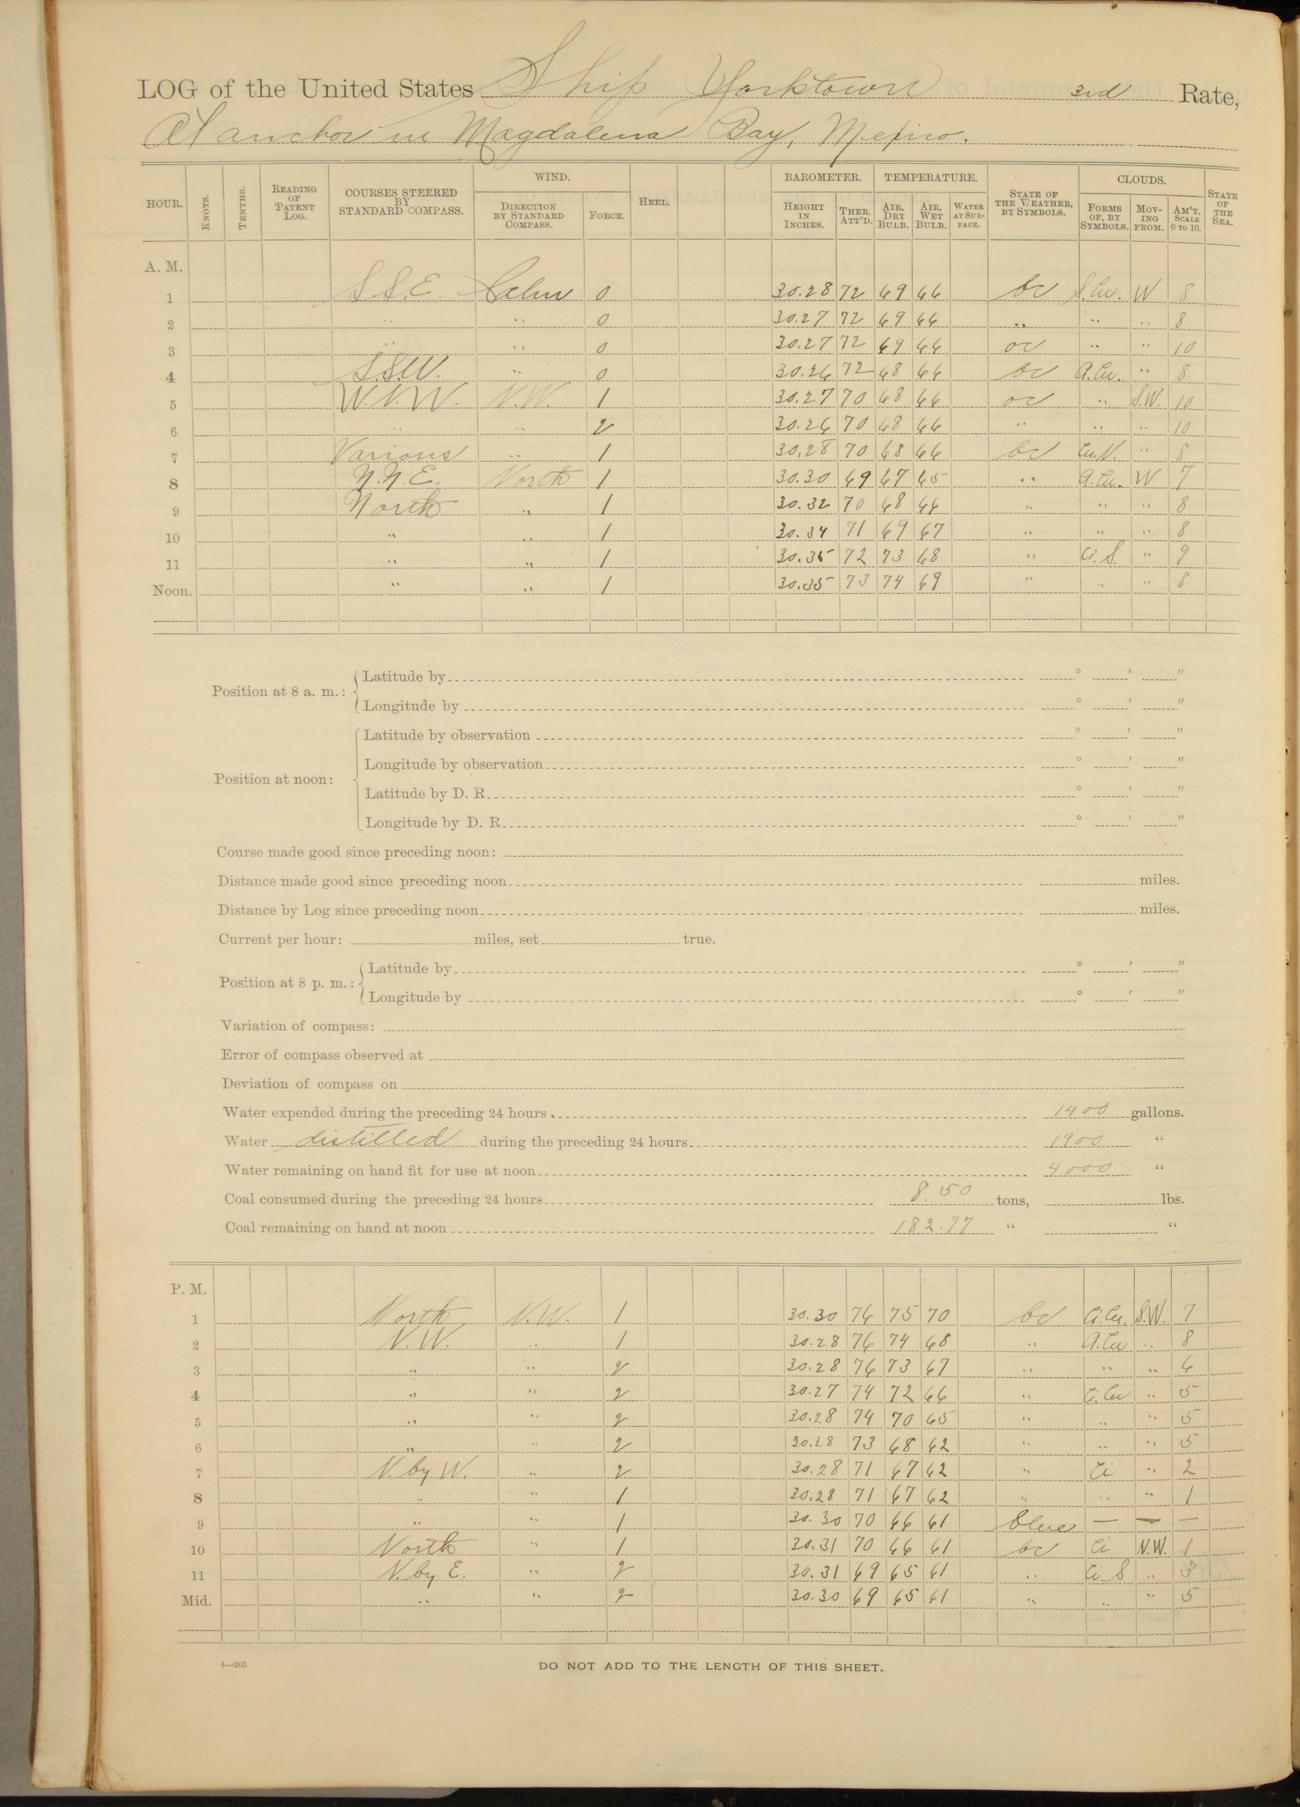 LOG of the United States Ship Yorktown 3rd Rate,
At anchor in Magdalena Bay, Mexico.
HOUR. KNOTS. TENTHS. READING OF PATENT LOG. COURSES STEERED BY STANDARD COMPASS. WIND. DIRECTION BY STANDARD COMPASS. FORCE. HEEL. BAROMETER. HEIGHT IN INCHES. THER. ATT'D. TEMPERATURE. AIR, DRY BULB. AIR, WET BULB. WATER AT SURFACE. STATE OF THE WEATHER, BY SYMBOLS. CLOUDS. FORMS OF, BY SYMBOLS. MOVING FROM. AM'T. SCALE 0 TO 10. STATE OF THE SEA.
A. M.
1 S.S.E. Calm 0 30.28 72 69 66 bc S.Cu. W 8
2 " " 0 30.27 72 69 66 " " " 8
3 " " 0 30.27 72 69 66 oc " " 10
4 S.S.W. " 0 30.26 72 68 66 bc A.Cu. " 8
5 W.N.W. N.W. 1 30.27 70 68 66 oc " S.W. 10
6 " " 2 30.26 70 68 66 " " " 10
7 Various " 1 30.28 70 68 66 bc Cu.N. " 8
8 N.N.E. North 1 30.30 69 67 65 " A.Cu. W 7
9 North " 1 30.32 70 68 66 " " " 8
10 " " 1 30.34 71 69 67 " " " 8
11 " " 1 30.35 72 73 68 " Ci.S. " 9
Noon. " " 1 30.35 73 74 69 " " " 8
Position at 8 a. m.: Latitude by ° ' "
Longitude by ° ' "
Position at noon: Latitude by observation ° ' "
Longitude by observation ° ' "
Latitude by D. R. ° ' "
Longitude by D. R. ° ' "
Course made good since preceding noon:
Distance made good since preceding noon miles.
Distance by Log since preceding noon miles.
Current per hour: miles, set true.
Position at 8 p. m.: Latitude by ° ' "
Longitude by ° ' "
Variation of compass:
Error of compass observed at
Deviation of compass on
Water expended during the preceding 24 hours 1400 gallons.
Water distilled during the preceding 24 hours 1900 "
Water remaining on hand fit for use at noon 4000 "
Coal consumed during the preceding 24 hours 8.50 tons, lbs.
Coal remaining on hand at noon 182.77 " "
P. M.
1 North N.W. 1 30.30 76 75 70 bc Ci.Cu. S.W. 7
2 N.W. " 1 30.28 76 74 68 " A.Cu " 8
3 " " 2 30.28 76 73 67 " " " 6
4 " " 2 30.27 74 72 66 " Ci.Cu " 5
5 " " 2 30.28 74 70 65 " " " 5
6 " " 2 30.28 73 68 62 " " " 5
7 N. by W. " 2 30.28 71 67 62 " Ci " 2
8 " " 1 30.28 71 67 62 " " " 1
9 " " 1 30.30 70 66 61 blue — — —
10 North " 1 30.31 70 66 61 bc Ci N.W. 1
11 N. by E. " 2 30.31 69 65 61 " Ci.S " 3
Mid. " " 2 30.30 69 65 61 " " " 5
4—265
DO NOT ADD TO THE LENGTH OF THIS SHEET.